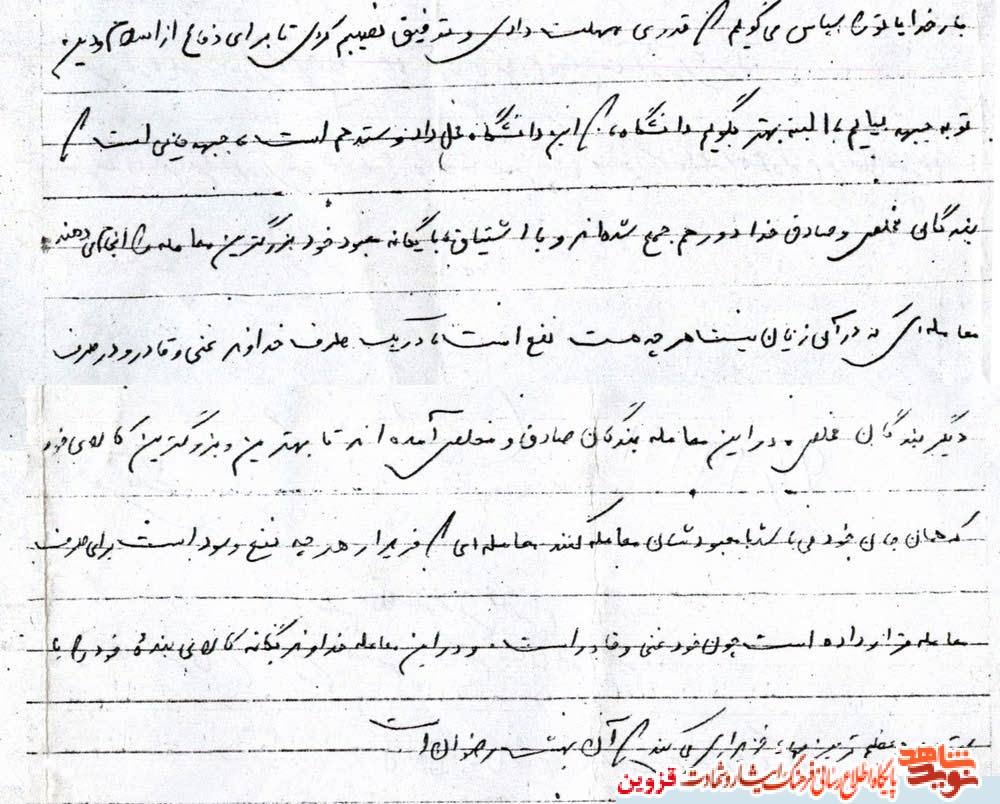 بار خدایا تو را سپاس می‌گویم که قدری مهلت دادی و توفیق نصیبم کردی تا برای دفاع از اسلام و دین
تو به جبهه بیایم، البته بهتر بگویم دانشگاه، که این دانشگاه محل داد و ستد هم است، جبهه جایی است که
بندگانی مخلص و صادق خدا دور هم جمع شده‌اند و با اشتیاق با یگانه معبود خود بزرگترین معامله را انجام می‌دهند.
معامله‌ای که در آن زیان نیست هر چه هست نفع است، در یک طرف خداوند غنی و قادر و در طرف
دیگر بندگان مخلص و در این معامله بندگان صادق و مخلص آمده‌اند تا بهترین و بزرگترین کالای خود
که همان جان خود می‌باشد با معبودشان معامله کنند معامله‌ای که خریدار هر چه نفع و سود است برای طرف
معامله قرار داده است چون خود غنی و قادر است و در این معامله خداوند یگانه کالای بندهٔ خود را با
بهترین و عظیم‌ترین بهاء خریداری می‌کند که آن بهشت رضوان است
نوید شاهد
پایگاه اطلاع رسانی فرهنگ ایثار و شهادت قزوین